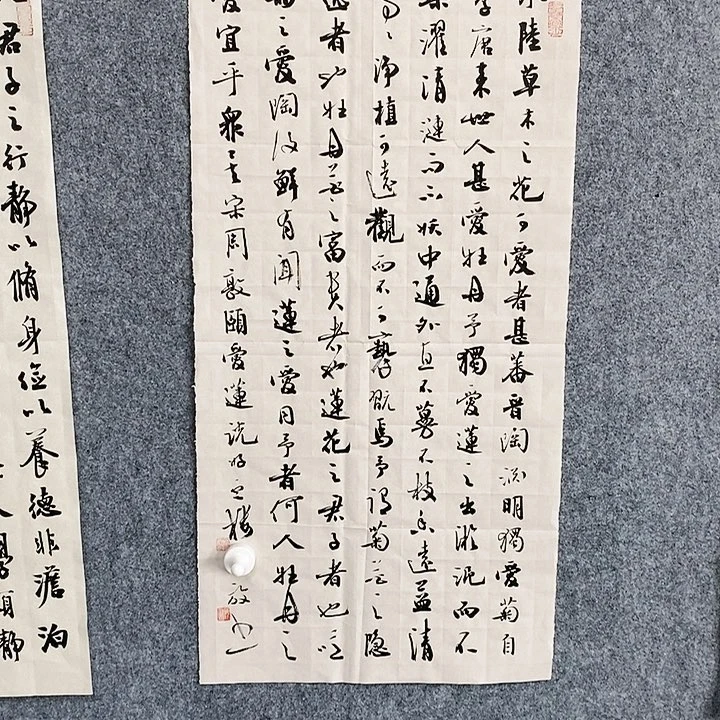 陸草木之花可愛者甚蕃晋陶渊明獨愛菊自
李唐来世人甚愛牡丹予獨愛蓮之出淤泥而不
染濯清漣而不妖中通外直不蔓不枝香遠益清
亭净植可遠觀而不可褻翫焉予谓菊花之隐
逸者也牡丹花之富贵者也蓮花之君子者也噫
菊之愛陶後鮮有聞蓮之愛同予者何人牡丹之
愛宜乎衆矣宋周敦頤愛蓮说
君子之行静以脩身儉以養德非澹泊
學須靜